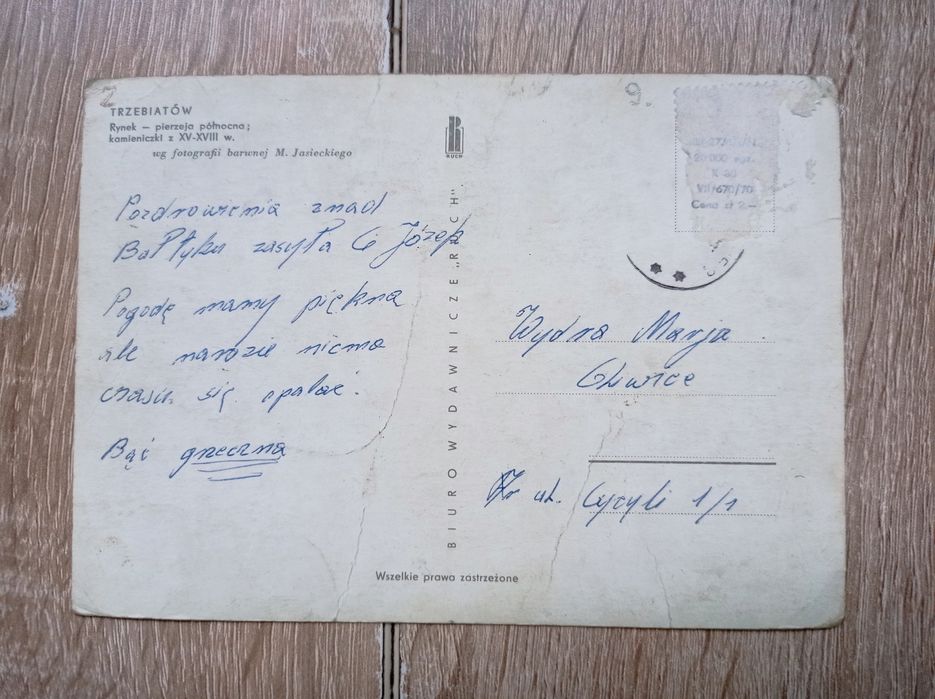 2
TRZEBIATÓW
Rynek — pierzeja północna;
kamieniczki z XV-XVIII w.
wg fotografii barwnej M. Jasieckiego
Pozdrowienia znad
Bałtyku zasyła Ci Józek
Pogodę mamy piękną
ale narazie niema
czasu się opalać.
Bąć grzeczna
RUCH
BIURO WYDAWNICZE „RUCH"
Wszelkie prawa zastrzeżone
9.
20 000 egz.
K 80
VII/670/70
Cena zł 2.—
Wydra Marja
Gliwice
ul. Cyryli 1/1